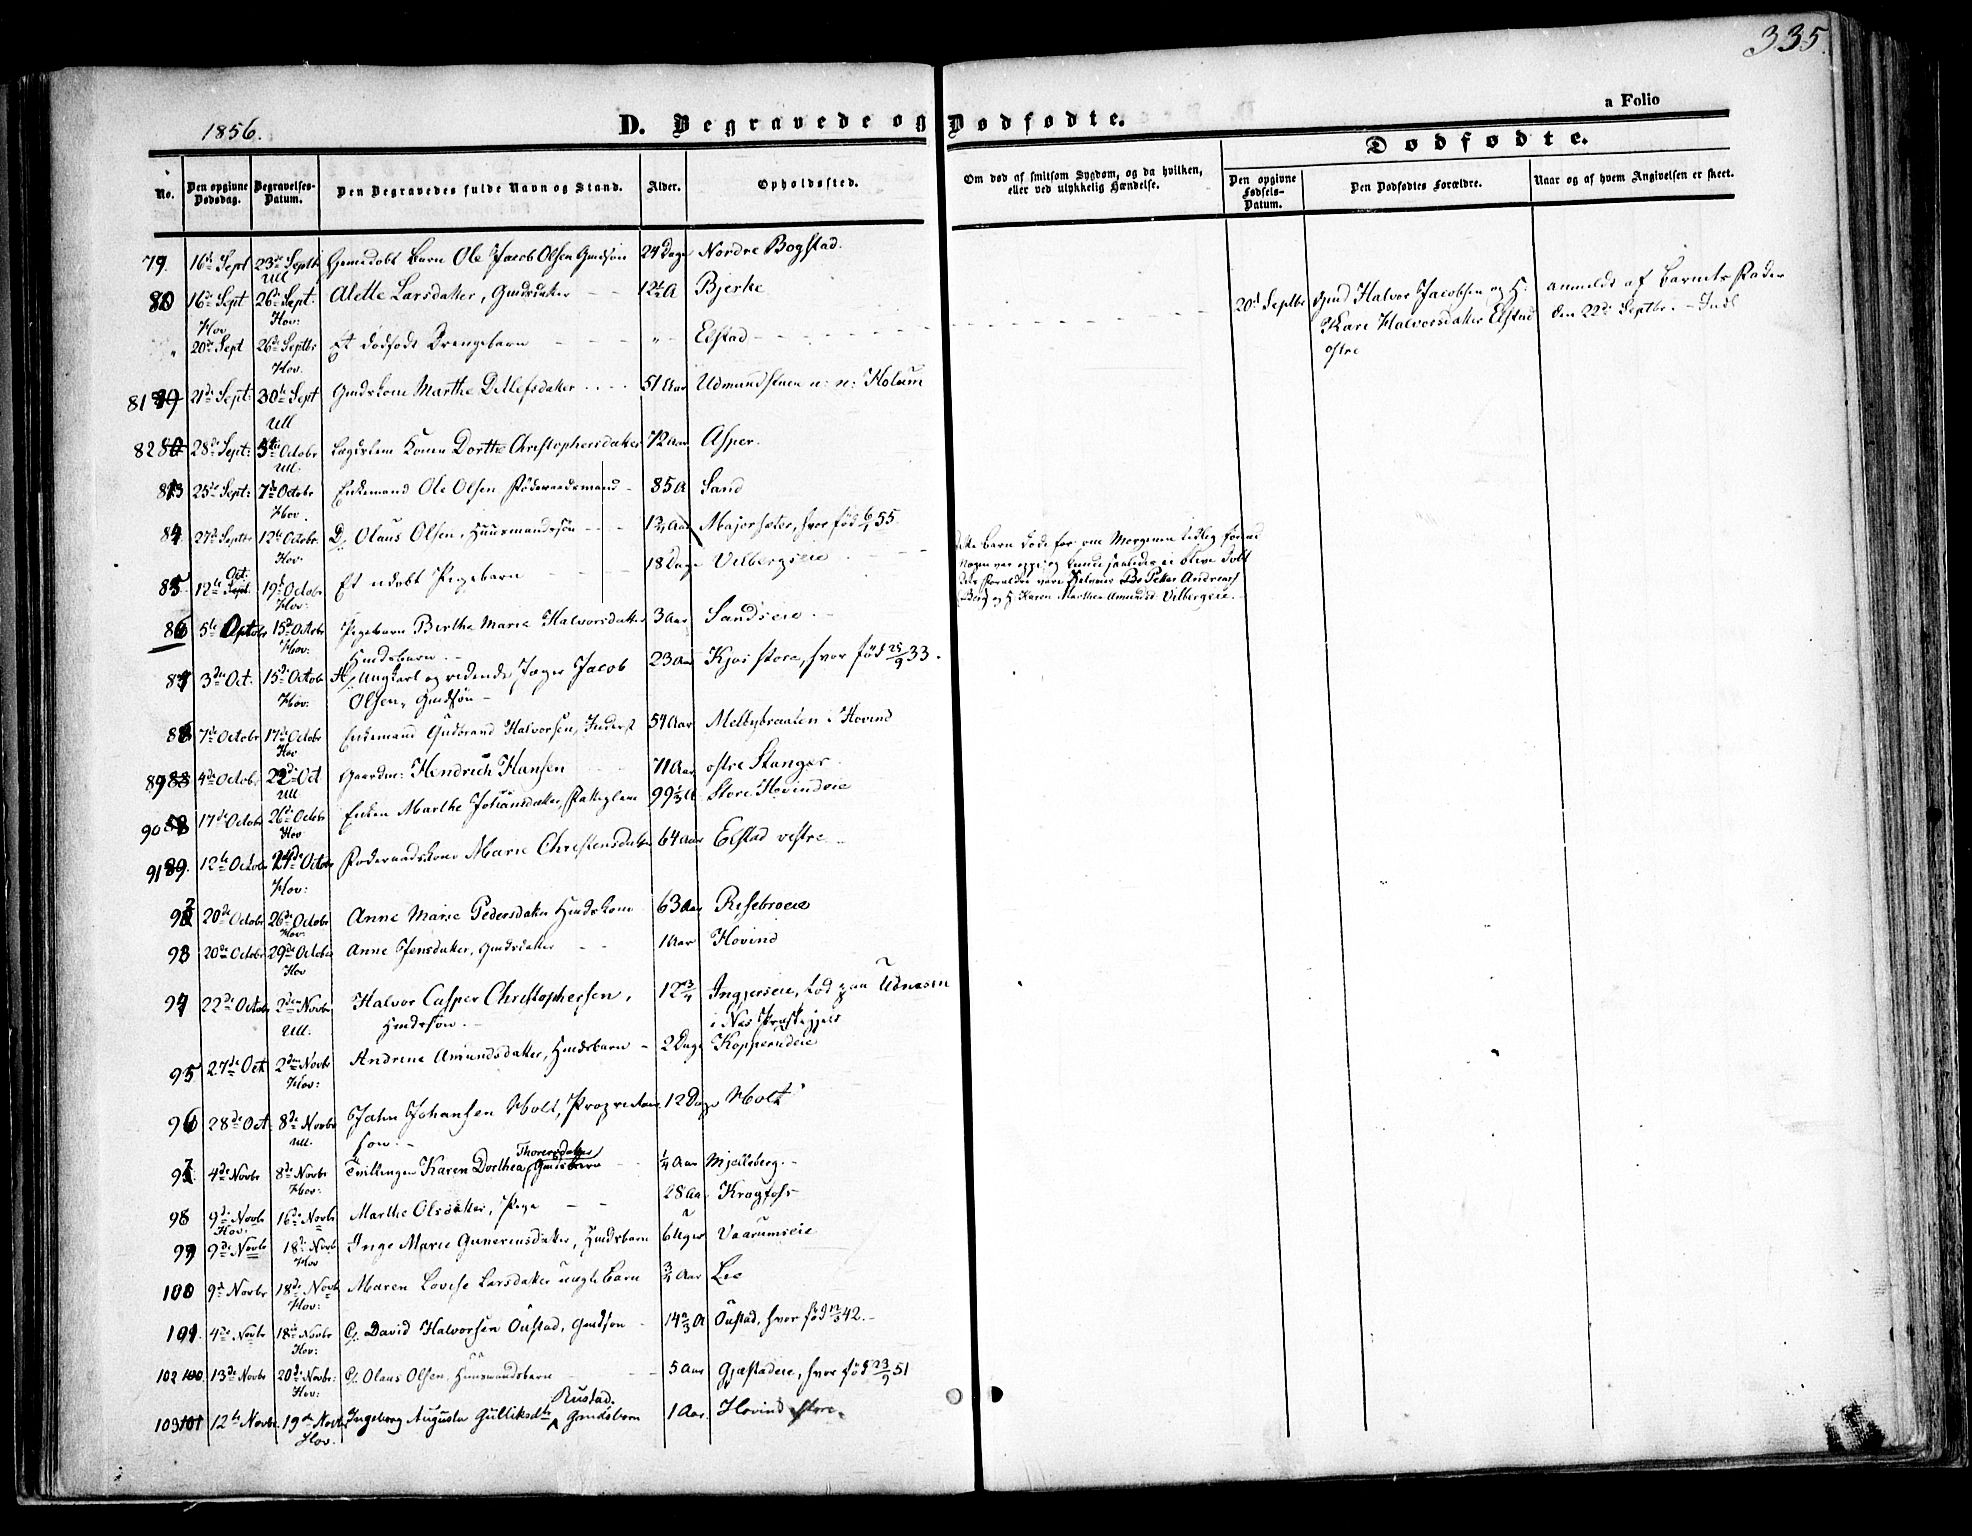 335.
a Folio
1856.
D. Begravede og Dødfødte.
Dødfødte.
No.
Den opgivne Dødsdag.
Begravelses-Datum.
Den Begravedes fulde Navn og Stand.
Alder.
Opholdssted.
Om død af smitsom Sygdom, og da hvilken, eller ved ulykkelig Hændelse.
Den opgivne Fødsels-Datum.
Den Dødfødtes Forældre.
Naar og af hvem Angivelsen er skeet.
79. 16de Sept 23de Septbr Ull Hjemedøbt Barn Ole Jacob Olsen Gmdsön 24 Dage Nordre Bogstad.
80 16de Sept 26de Sept: Hov: Alette Larsdatter, Gmdsdatter 12½ A Bjerke
" Hov 20de Sept 26de Septbr Hov. Et dödfödt Drengebarn " Elstad
20d Septbr Gmd Halvor Jacobsen og H: Kari Halvorsdatter Elstad østre
anmeldt af Barnets Fader den 22de Septbr.
81 21de Sept: 30te Sept Ull Gmdskone Marthe Detlefsdatter 51 Aar Udmundstuen u: n: Holum
82 28de Sept: 5te Octobr Ull. Lægdslem Konen Dorthe Christophersdatter 72 Aar Asper.
83 25de Sept: 7de Octobr Hov. Enkemand Ole Olsen Föderaadsmand 85 A Sand
84 27de Septbr 12te Octobr. Hov D. Olaus Olsen, Huusmandssön 1¾ Aar Majorsæter, hvor föd 6/1 55.
85 12te Oct. 19de Octobr Hov: Et udöbt Pigebarn 18 Dage Vilbergseie
Dette Barn döde for om Morgenen tidlig förend Nogen var oppe og kunde saaledes ei blive döbt dets Forældre vare Peter Andreas Berg og H. Karen Marthea Amunds: Vilbergeie.
86 5te Octobr 15de Octobr Hov: Pigebarn Birthe Marie Halvorsdatter Hmdsbarn. 3 Aar Sandseie
87 3die Oct: 15de Octobr Hov: Ungkarl og ridende Jæger Jacob Olsen, Gmdsön 23 Aar Kjos store, hvor föd 25/9 33.
88 7de Octobr 17de Octobr Hov Enkemand Gudbrand Halvorsen, Inderst 54 Aar Melbybraaten i Hovind
89 4de Octob. 22de Oct Ull Gaardm: Hendrich Hansen 71 Aar östre Stanger
90 17de Octobr 26de Octobr Hov Enken Marthe Johansdatter, Fattiglem 99⅓ A Store Hovindeie
91 12te Octobr 24de Octobr Hov: Föderaadskone Marie Christensdatter 64 Aar Elstad vestre
92 20de Octobr 26de Octobr Hov. Anne Marie Pedersdatter Hmdskone 63 Aar Risebroeie
93 20de Octobr 29de Octobr Hov Anne Jensdatter, Gmdsdatter 1 Aar Hovind
94 22de Octobr 2den Novbr Ull. Halvor Casper Christophersen, Hmdssön. 12¾ Ingjerseie, död paa Udnæsen i Næs Præstegjeld
95 27de Oct 2den Novbr Hov: Andrine Amundsdatter, Hmdsbarn 2 Dage Kopperudeie
96 28de Oct 8de Novbr Ull. John Johansen Holt, Proprietair sön 12 Dage Holt
97 4de Novbr 8de Novbr Hov: Tvillingen Karen Dorthea Thorersdatter Gmdsbarn ¼ Aar Mjelleberg.
98 9de Novbr Hov. 16de Novbr Marthe Olsdatter, Pige 28 Aar Kragfoss
99 9de Novbr 18de Novbr Hov Inge Marie Gunerinsdatter, Hmdsbarn 6 Uger Vaarumseie
100 9de Novbr 18de Novbr Hov: Maren Lovise Larsdatter uægte Barn ¾ Aar Lie
101. 4de Novbr 18de Novbr Hov: David Halvorsen Oustad, Gmdssön 14⅔ A Oustad, hvor föd 12/3 42.
102 100. 13de Novbr 20de Novbr: Hov: Olaus Olsen, Huusmandsbarn 5 Aar Gjæstadeie, hvor föd 23/9 51
103 101 12te Novbr. 19de Novbr Hov. Ingeborg Augusta Gulliksdtr Rustad. Gmdsbarn 1 Aar. Hovind store.